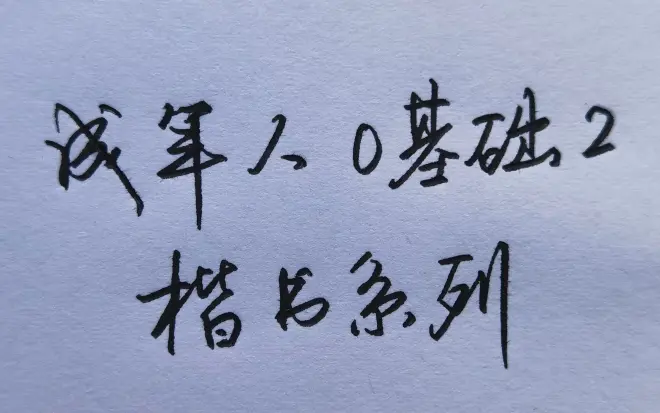 成年人0基础2
楷书系列